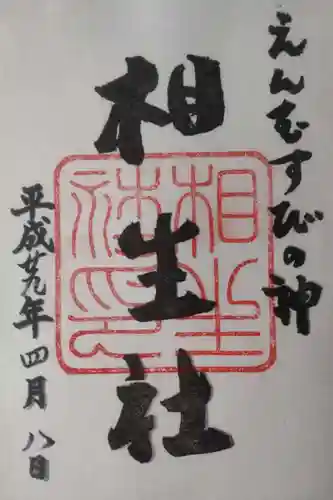 えんむすびの神
相生社
平成廿九年四月八日
相生社印